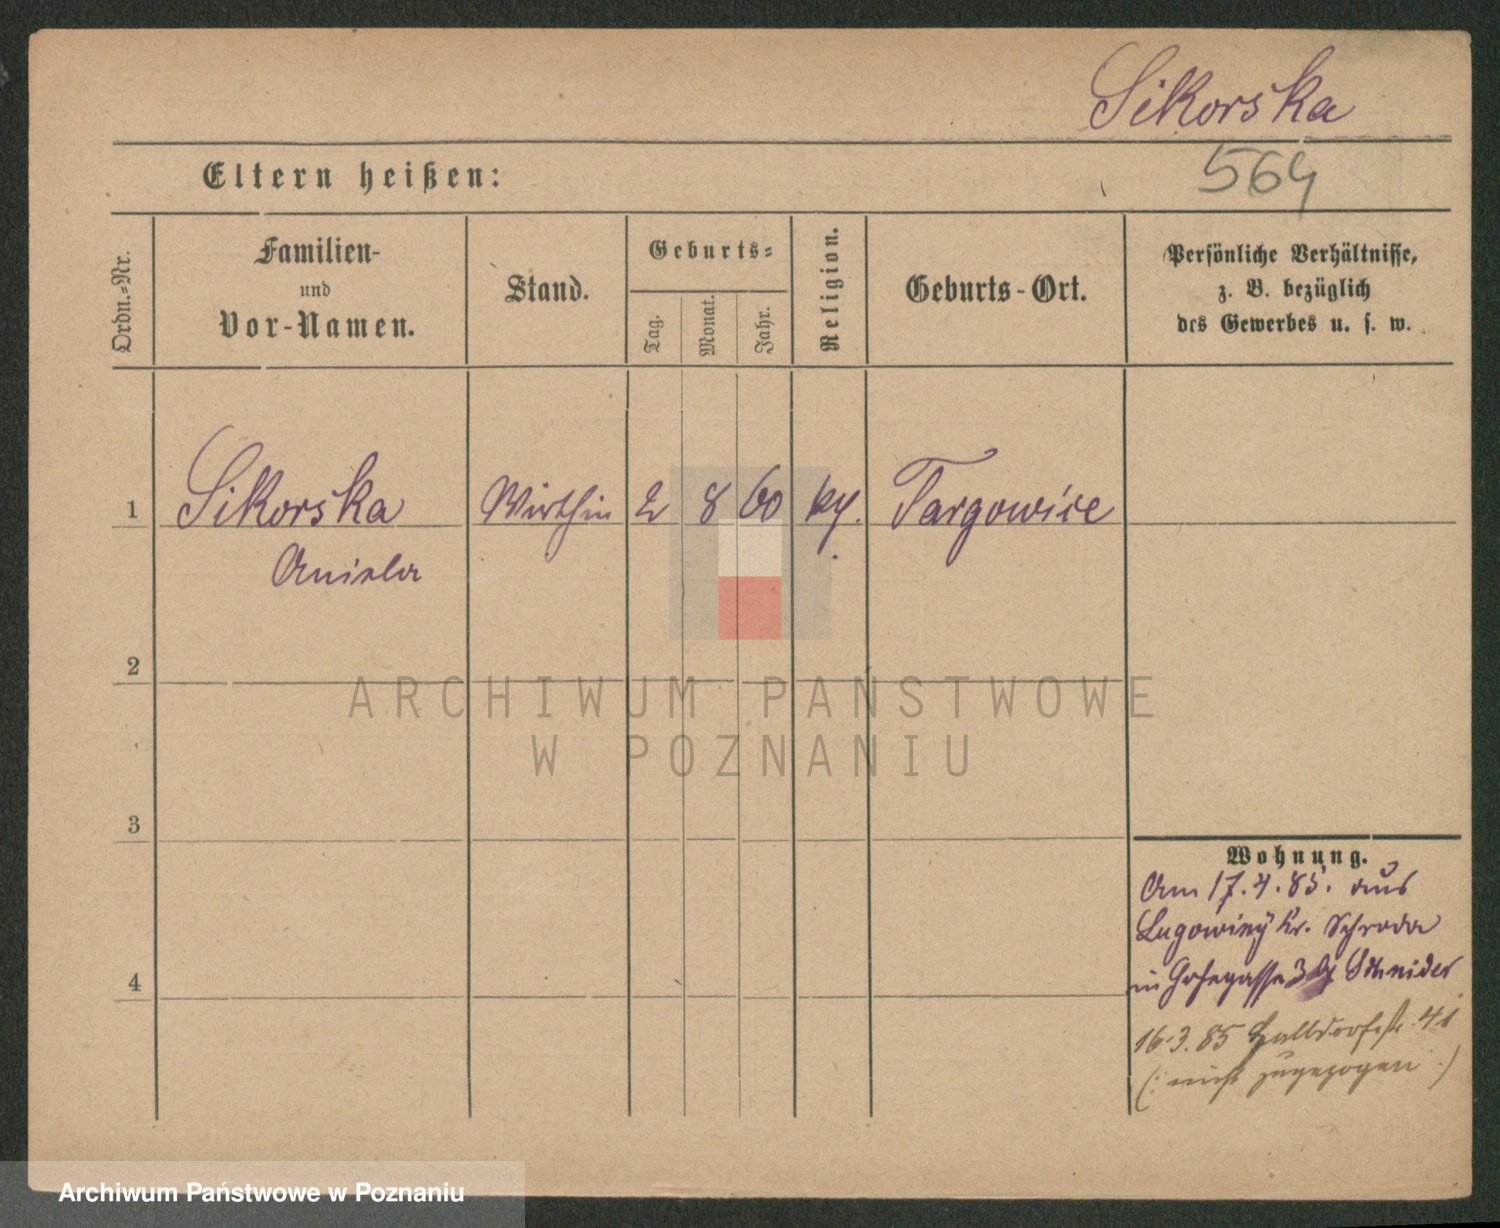 Sikorska
564
Eltern heißen:
Ordn.-Nr.
Familien-
und
Vor-Namen.
Stand.
Geburts-
Tag.
Monat.
Jahr.
Religion.
Geburts-Ort.
Persönliche Verhältnisse,
z. B. bezüglich
des Gewerbes u. s. w.
1 Sikorska Wirthin 2 8 60 Targowice
Aniela
2
3
4
ARCHIWUM PAŃSTWOWE
W POZNANIU
Wohnung.
Am 17.4.85. aus
Lugowiny Kr. Schroda
in 3 Schneider
16.3.85 Halbdorfstr. 41
(: nicht zugezogen :)
Archiwum Państwowe w Poznaniu